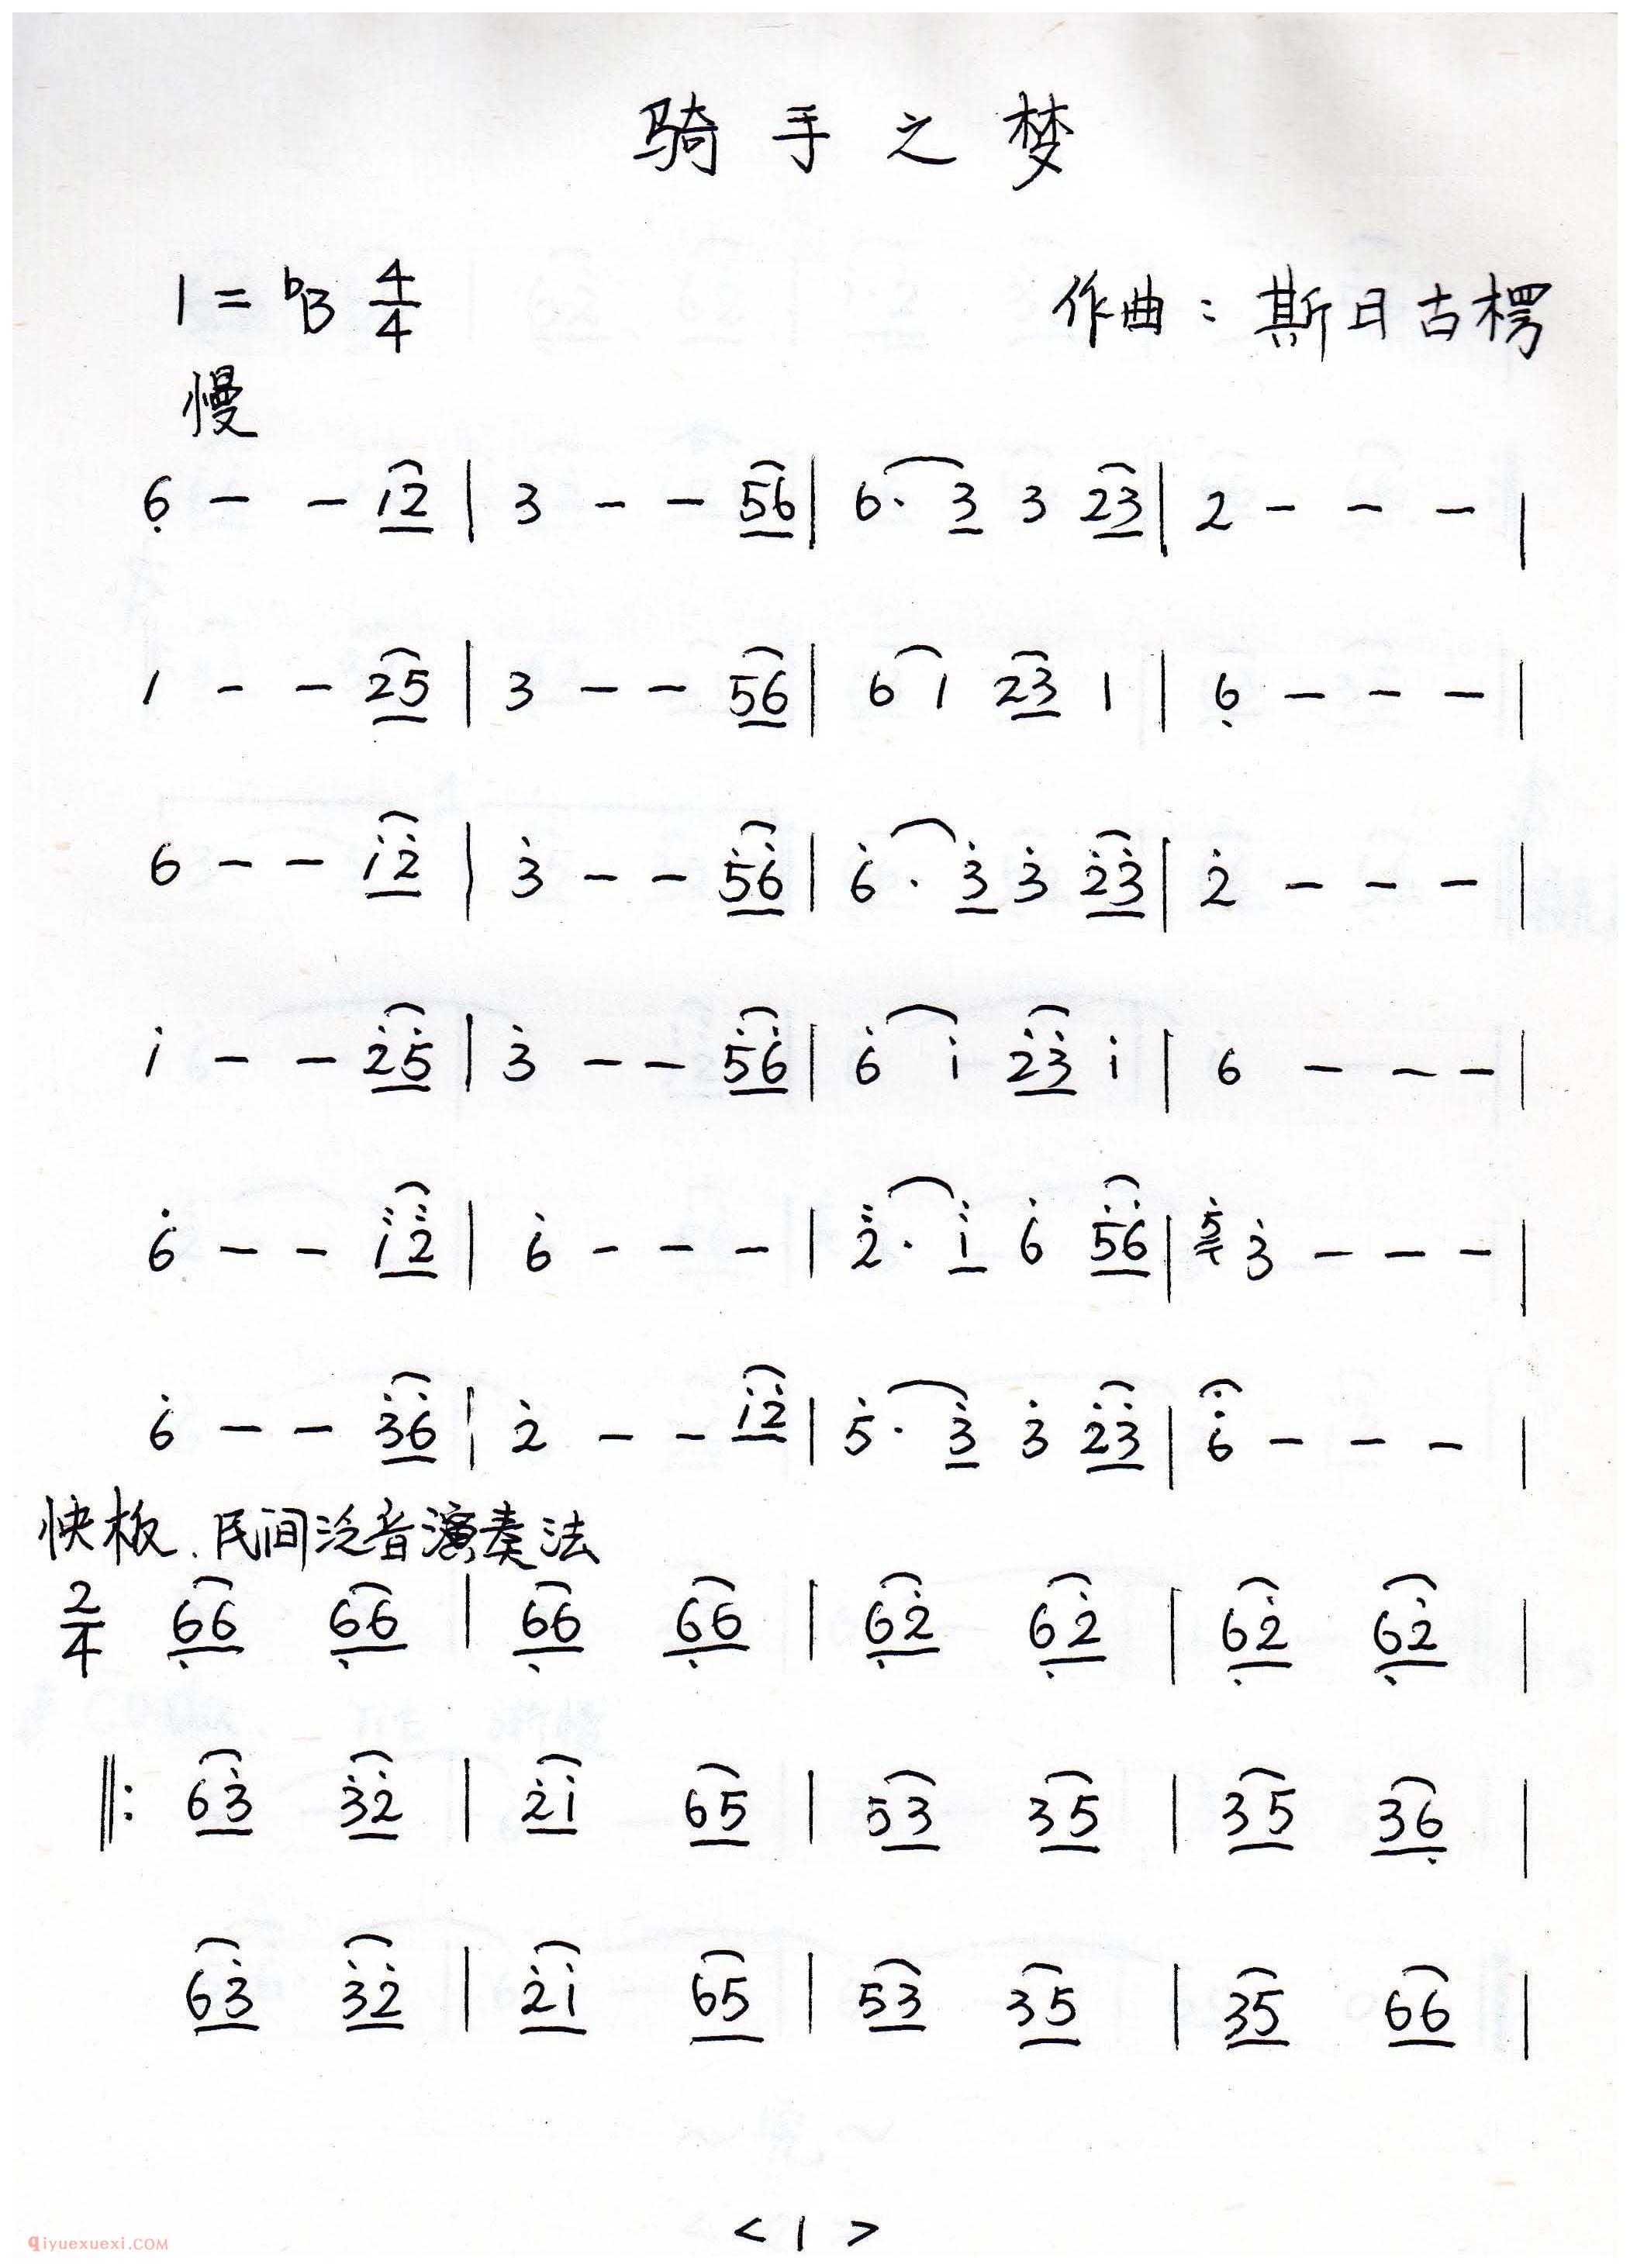 骑手之梦
1=ᵇB 4/4
作曲：斯日古楞
慢
6̣ - - 12 | 3 - - 56 | 6· 3 3 23 | 2 - - - |
1 - - 25 | 3 - - 56 | 6 1 23 1 | 6̣ - - - |
6 - - 1̇2̇ | 3̇ - - 5̇6̇ | 6̇· 3̇ 3̇ 2̇3̇ | 2̇ - - - |
1̇ - - 2̇5̇ | 3̇ - - 5̇6̇ | 6̇ 1̇ 2̇3̇ 1̇ | 6 - - - |
6̇ - - 1̈2̈ | 6̇ - - - | 2̈· 1̈ 6̇ 5̇6̇ | 5̇ 3̇ - - - |
6̇ - - 3̇6̇ | 2̇ - - 1̇2̇ | 5̇· 3̇ 3̇ 2̇3̇ | 6̇ - - - |
快板、民间泛音演奏法
2/4 6̣6 6̣6 | 6̣6 6̣6 | 6̣2̇ 6̣2̇ | 6̣2̇ 6̣2̇ |
‖: 63̇ 3̇2̇ | 2̇1̇ 65 | 53 35 | 35 36̣ |
63̇ 3̇2̇ | 2̇1̇ 65 | 53 35 | 35 66 |
<1>
qiyuexuexi.COM